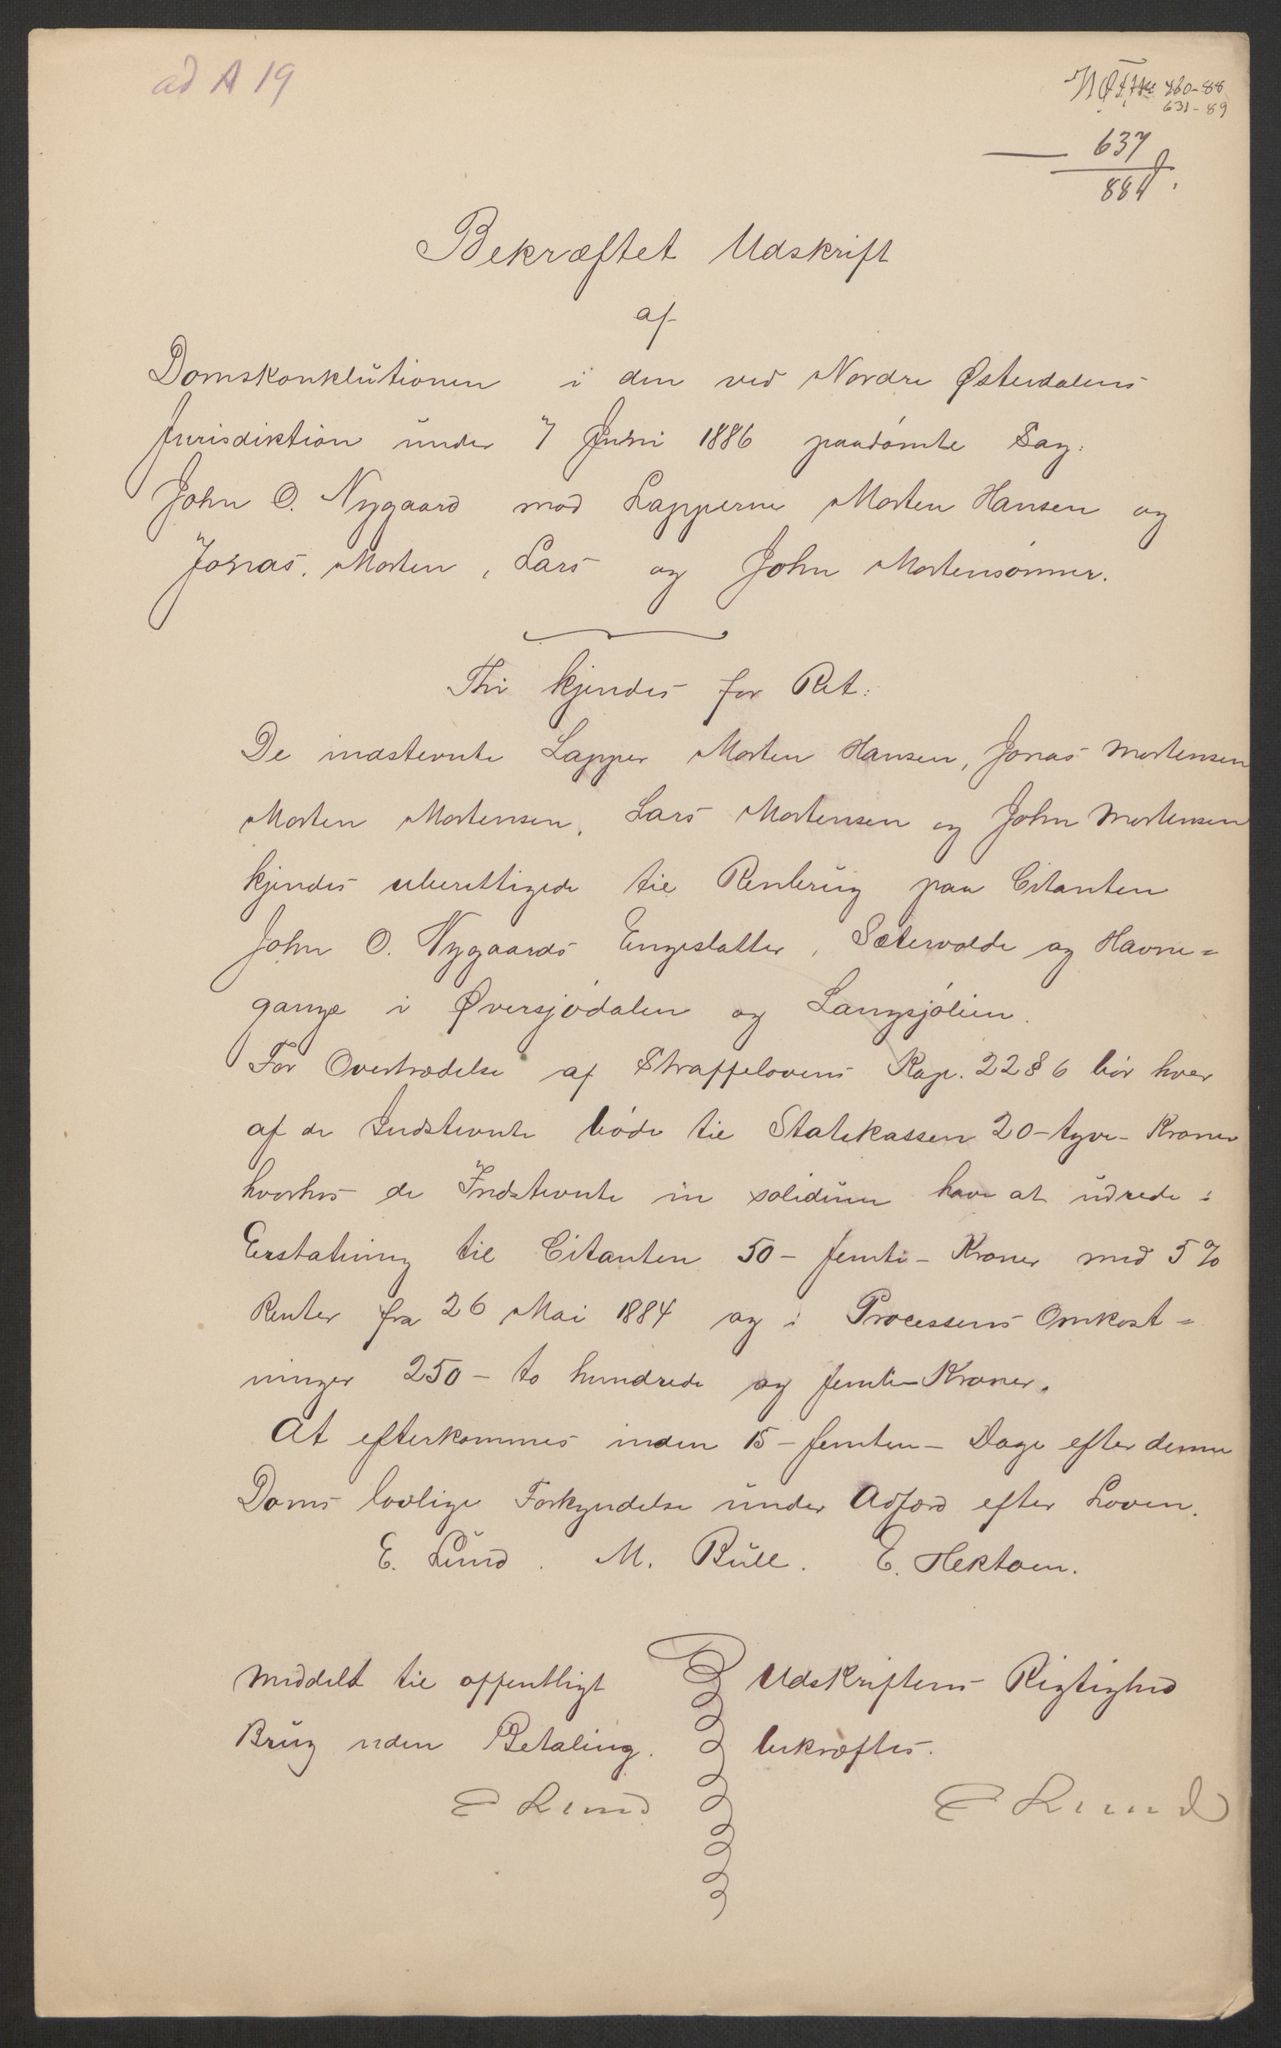 ad A 19
360-88
631-89
637
884
Bekræftet Udskrift
af
Domskonklutionen i den ved Nordre Østerdalens
Jurisdiktion under 7 Juni 1886 paadømte Sag:
John O. Nygaard mod Lapperne Morten Hansen og
Jonas, Morten, Lars og John Mortensønner.
Thi kjendes for Ret:
De indstevnte Lapper Morten Hansen, Jonas Mortensen
Morten Mortensen, Lars Mortensen og John Mortensen
kjendes uberettigede til Renbrug paa Citanten
John O. Nygaards Engeslatter, Sætervolde og Havne=
gange i Øversjødalen og Langsjølien.
For Overtrædelse af Straffelovens Kap. 22 § 6 bør hver
af de Indstevnte bøde til Statskassen 20-tyve- Kroner
hvorhos de Indstevnte in solidum have at udrede i
Erstatning til Citanten 50- femti- Kroner med 5 %
Renter fra 26 Mai 1884 og i Processens Omkost=
ninger 250- to hundrede og femti- Kroner.
At efterkommes inden 15- femten- Dage efter denne
Doms lovlige Forkyndelse under Adfærd efter Loven.
E. Lund. M. Bull. E. Hektoen.
Meddelt til offentligt
Brug uden Betaling.
E Lund
Udskriftens Rigtighed
bekræftes.
E Lund